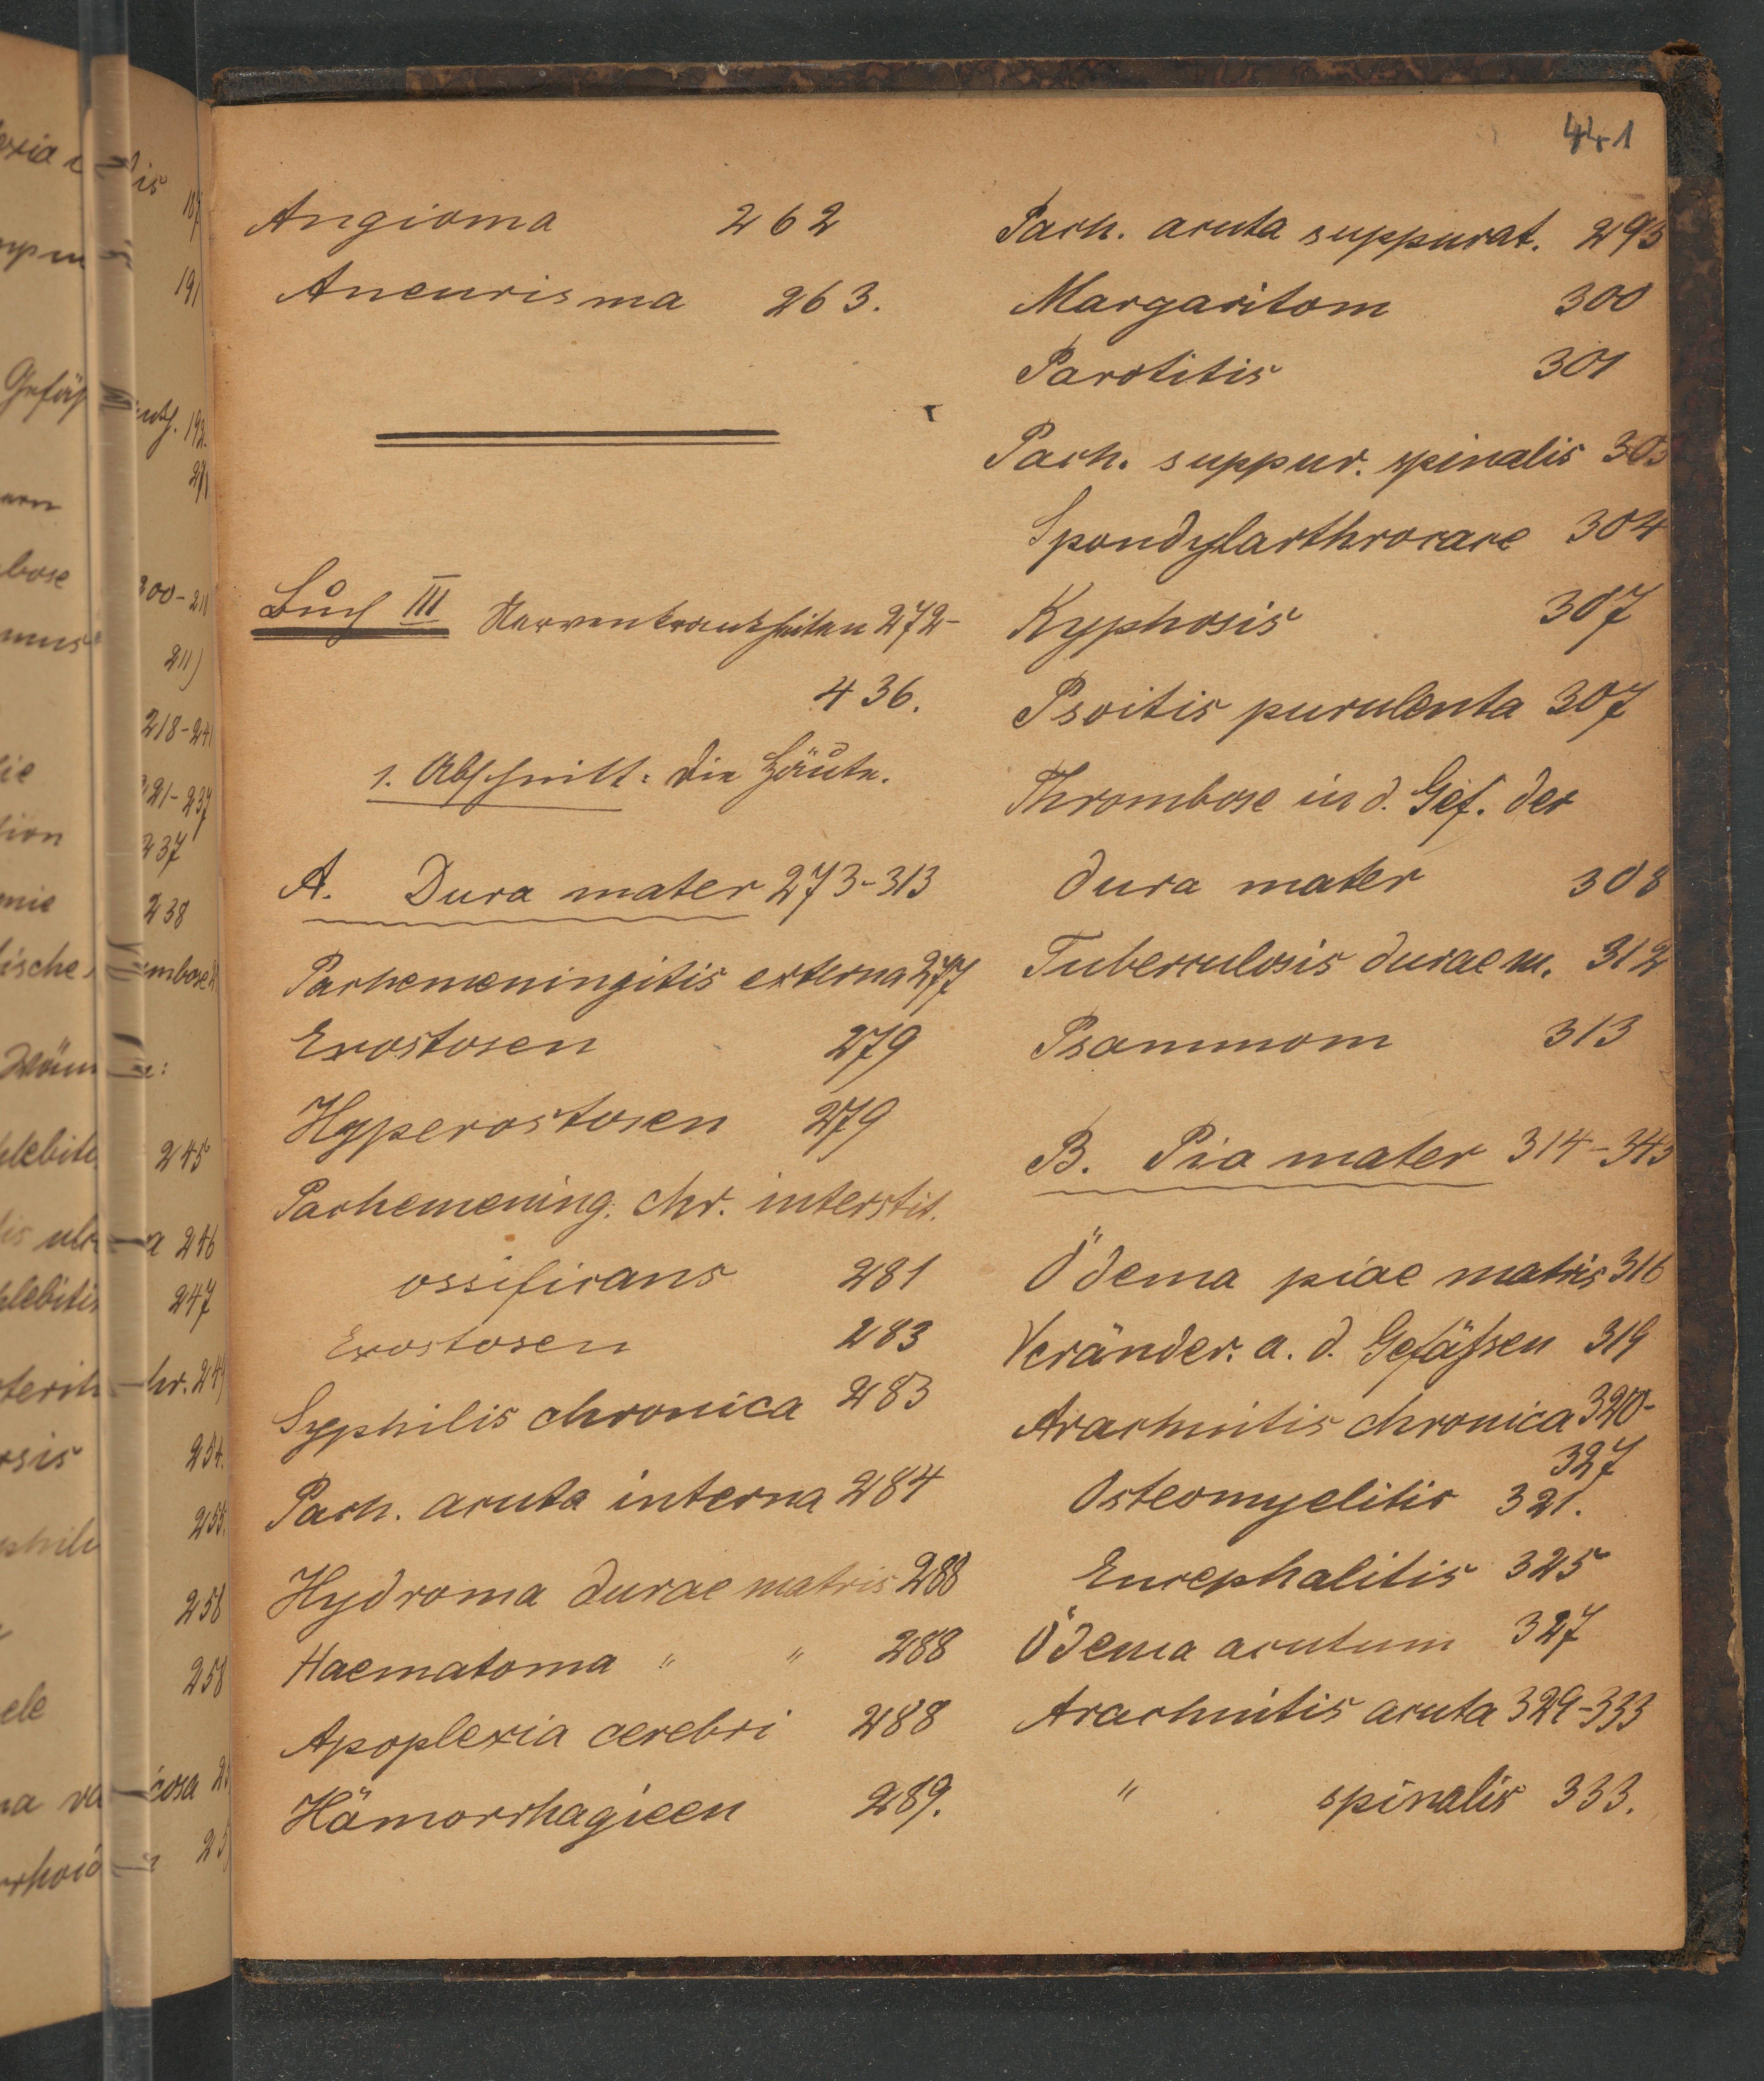 441
Angioma 262
Aneurisma 263.
Buch III Nervenkrankheiten 272-
436.
1. Abschnitt: Die Häute.
A. Dura mater 273-313
Pachemeningitis externa 277
Exostosen 279
Hyperostosen 279
Pachemening. chr. interstit.
ossificans 281
Exostosen 283
Syphilis chronica 283
Pach. acuta interna 284
Hydroma durae matris 288
Haematoma " " 288
Apoplexia cerebri 288
Hämorrhagieen 289.
Pach. acuta suppurat. 295
Margaritom 300
Parotitis 301
Pach. suppur. spinalis 303
Spondylarthrocace 304
Kyphosis 307
Psoitis purulenta 307
Thrombose in d. Gef. der
dura mater 308
Tuberculosis durae m. 312
Psammom 313
B. Pia mater 314-343
Ödema piae matris 316
Veränder. a. d. Gefäßen 319
Arachnitis chronica 320-
327
Osteomyelitis 321.
Encephalitis 325
Ödema acutum 327
Arachnitis acuta 329-333
" spinalis 333.